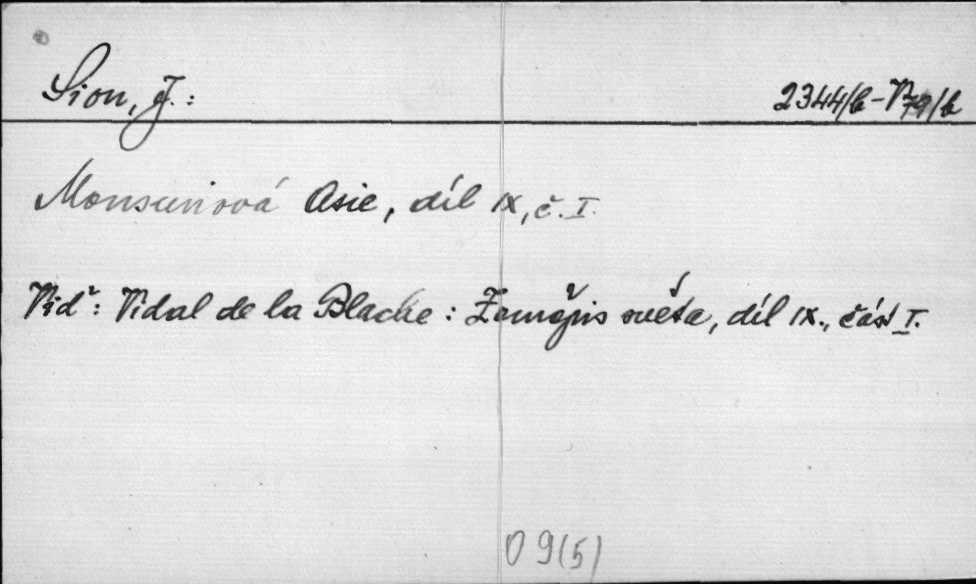 Sion, J.: 2344/b-V79/b
Monsunová Asie, díl IX, č. I.
Vid': Vidal de la Blache: Zeměpis světa, díl IX., část I.
D 9(5)